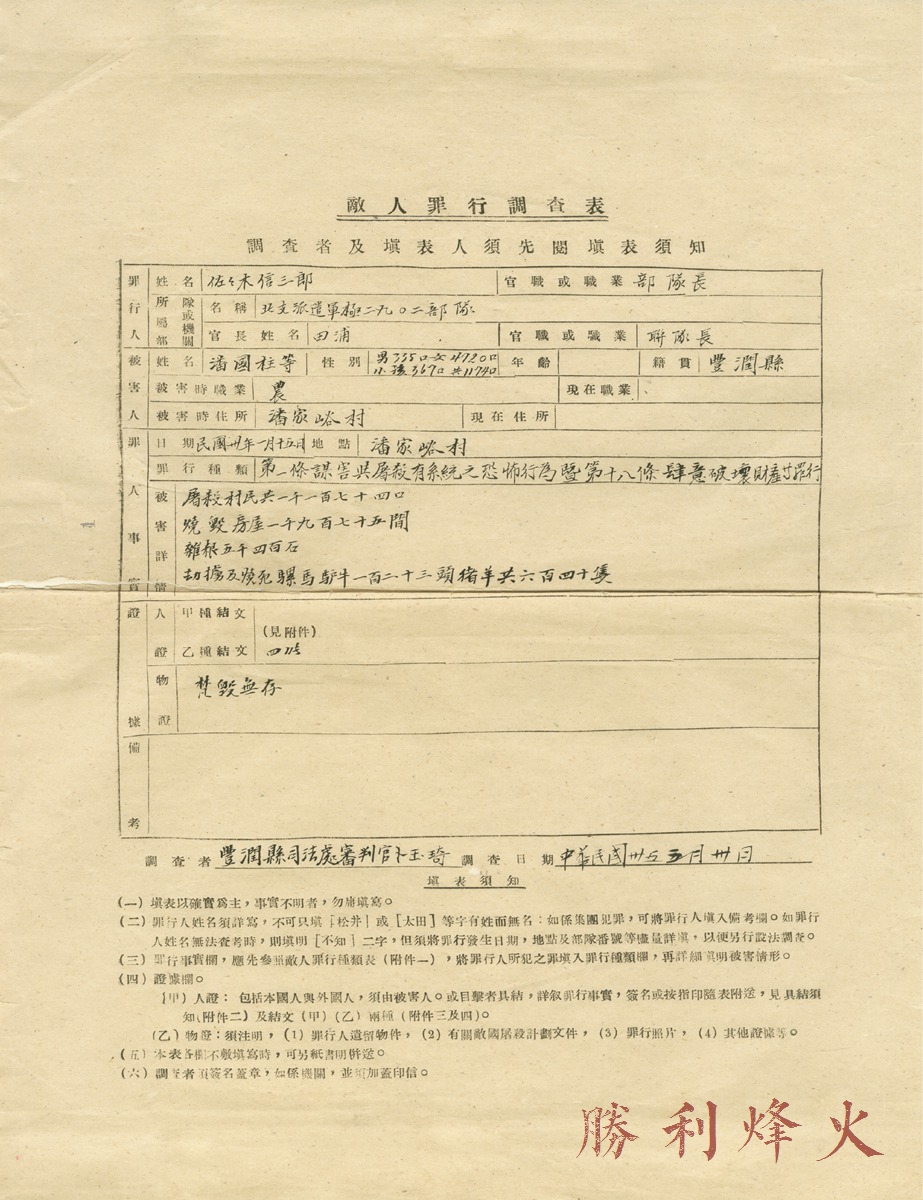 敵人罪行調查表
調查者及填表人須先閱填表須知
罪行人 姓名 佐々木信三郎 官職或職業 部隊長
所屬部隊或機關 名稱 北支派遣軍極二九〇二部隊
官長姓名 田浦 官職或職業 聯隊長
被害人 姓名 潘國柱等 性別 男335口女4720口 小孩367口共1174口 年齡 籍貫 豐潤縣
被害時職業 農 現在職業
被害時住所 潘家峪村 現在住所
罪人事實 日期 民國卅年一月十五日 地點 潘家峪村
罪行種類 第一條謀害與屠殺有系統之恐怖行為暨第十八條肆意破壞財產之罪行
被害詳情 屠殺村民共一千一百七十四口
燒毀房屋一千九百七十五間
雜根五千四百石
劫擄及燒死騾馬驢牛一百二十三頭豬羊共六百四十隻
證據 人證 甲種結文
(見附件)
乙種結文 四張
物證 焚毀無存
備考
調查者 豐潤縣司法處審判官卜玉琦 調查日期 中華民國卅五五月卅日
填表須知
(一)填表以確實爲主,事實不明者,勿庸填寫。
(二)罪行人姓名須詳寫,不可只填[松井]或[太田]等字有姓而無名:如係集團犯罪,可將罪行人填入備考欄。如罪行
人姓名無法查考時,則填明[不知]二字,但須將罪行發生日期,地點及部隊番號等儘量詳填,以便另行設法調查。
(三)罪行事實欄,應先參照敵人罪行種類表(附件一),將罪行人所犯之罪填入罪行種類欄,再詳細填明被害情形。
(四)證據欄。
(甲)人證:包括本國人與外國人,須由被害人。或目擊者具結,詳叙罪行事實,簽名或按指印隨表附送,見具結須
知(附件二)及結文(甲)(乙)兩種(附件三及四)。
(乙)物證:須注明,(1)罪行人遺留物件,(2)有關敵國屠殺計劃文件,(3)罪行照片,(4)其他證據等。
(五)本表各欄不敷填寫時,可另紙書明併送。
(六)調查者須簽名蓋章,如係機關,並須加蓋印信。
勝利烽火